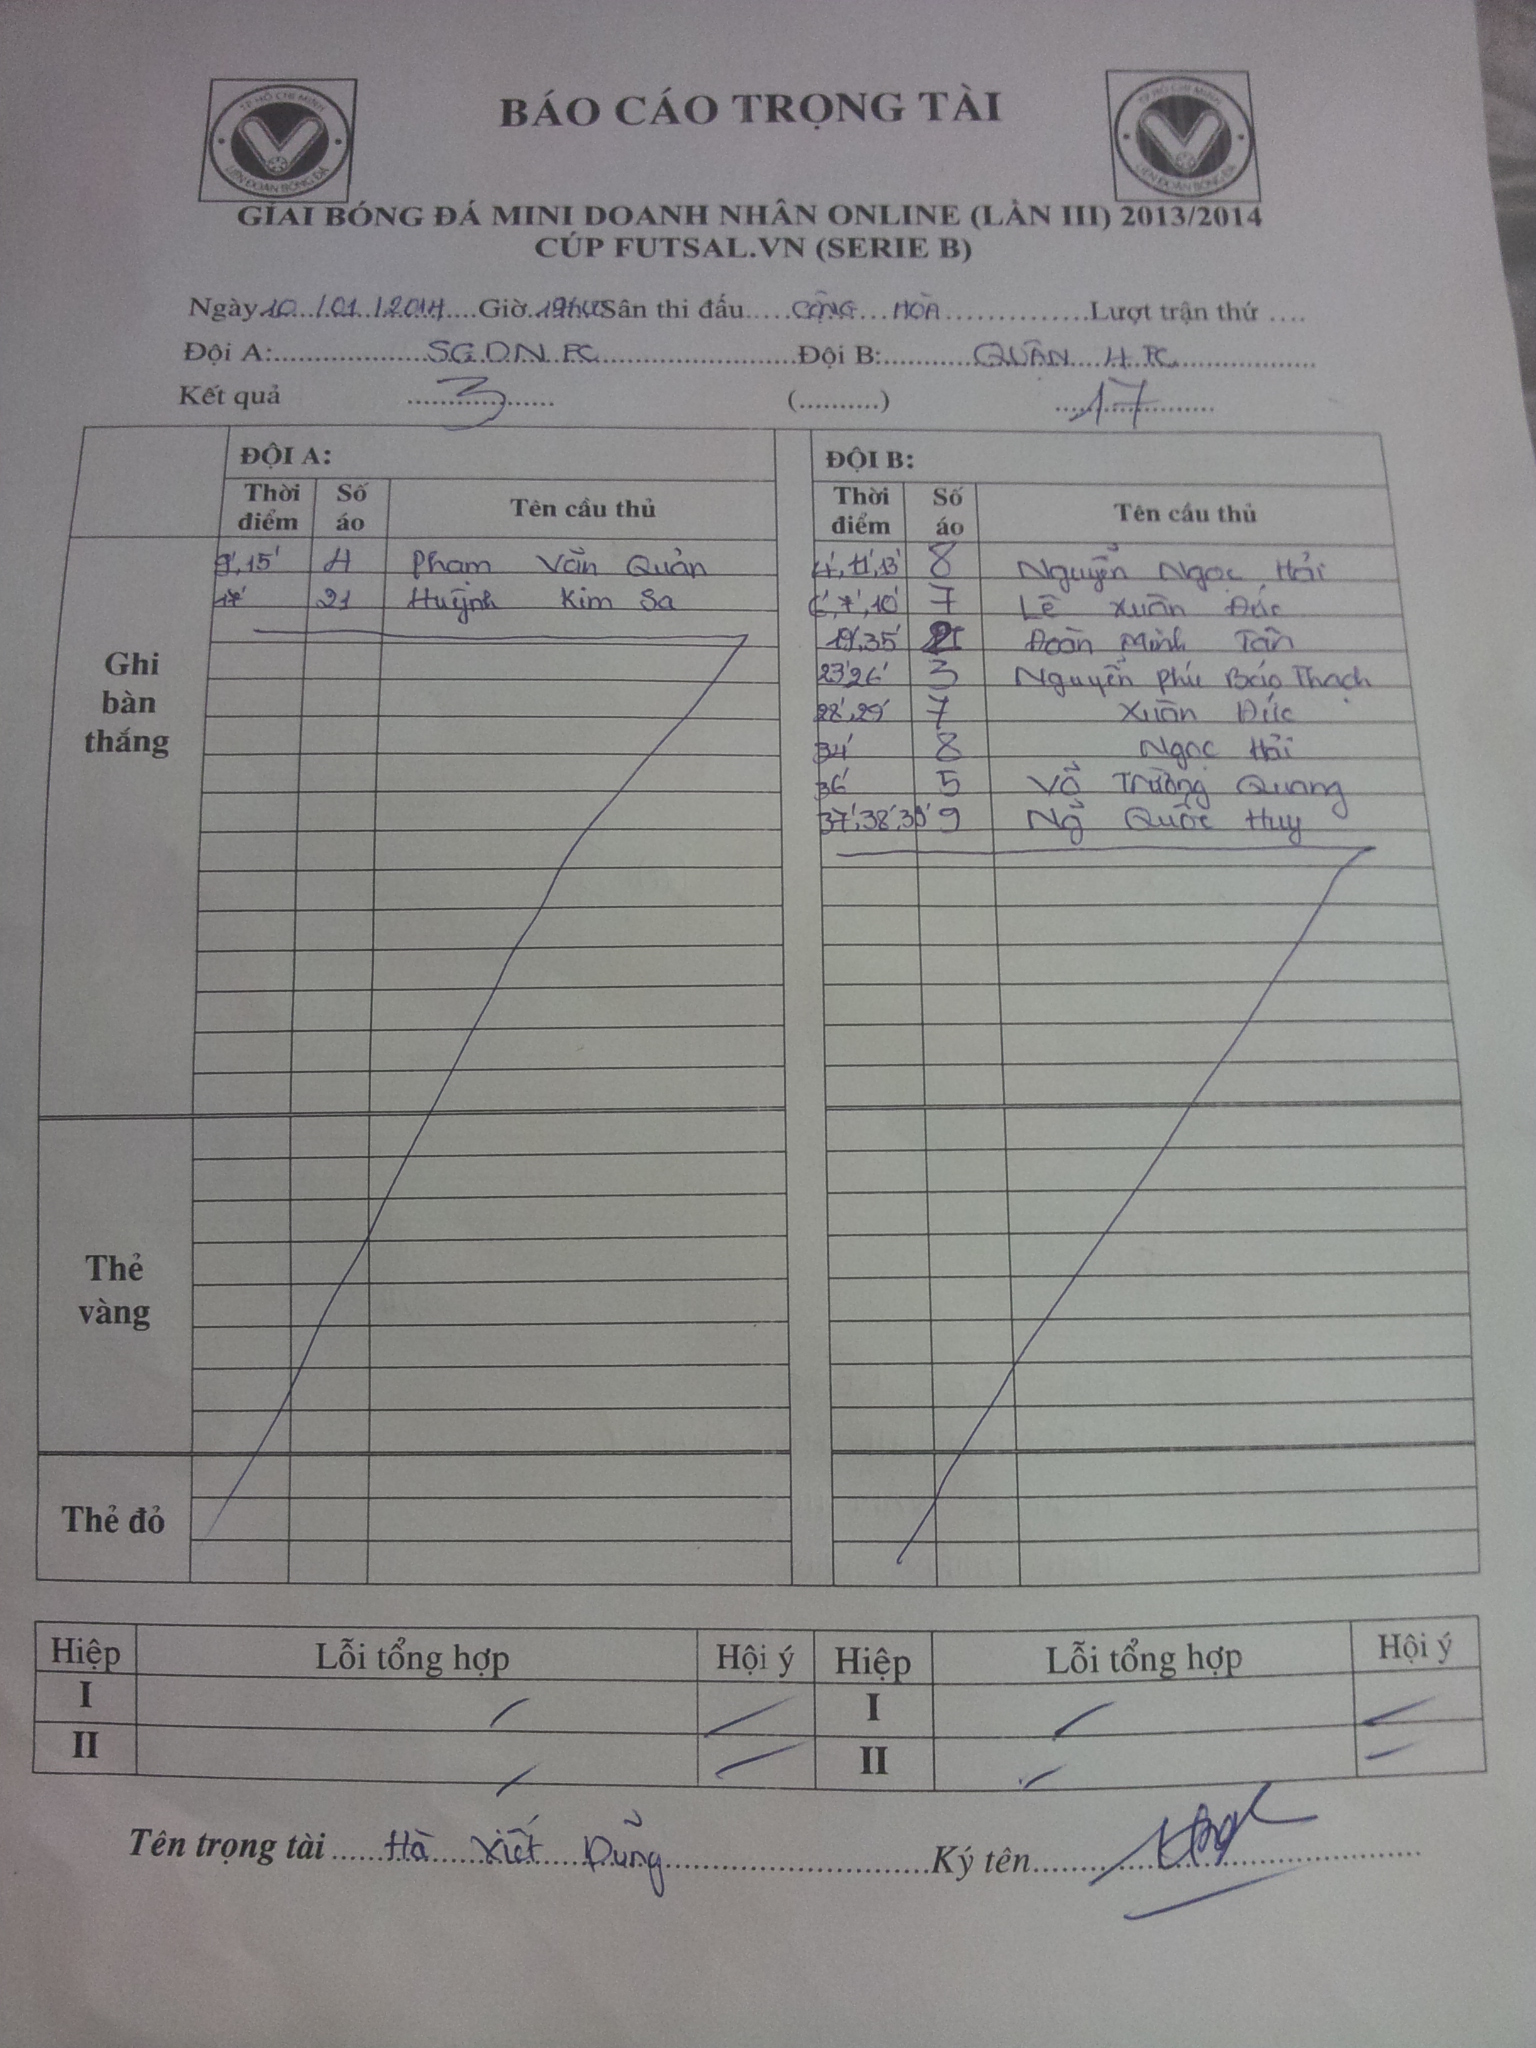 TP HỒ CHÍ MINH
LIÊN ĐOÀN BÓNG ĐÁ
BÁO CÁO TRỌNG TÀI
TP HỒ CHÍ MINH
LIÊN ĐOÀN BÓNG ĐÁ
GIẢI BÓNG ĐÁ MINI DOANH NHÂN ONLINE (LẦN III) 2013/2014
CÚP FUTSAL.VN (SERIE B)
Ngày 10 / 01 / 2014 Giờ Sân thi đấu CỘNG HÒA Lượt trận thứ ....
Đội A: SGDN FC Đội B: QUẬN 4 FC
Kết quả 3 (..........) 17
ĐỘI A: ĐỘI B:
Thời điểm Số áo Tên cầu thủ Thời điểm Số áo Tên cầu thủ
Ghi bàn thắng
9', 15' 4 Phạm Văn Quản 4', 11', 13' 8 Nguyễn Ngọc Hải
17' 21 Huỳnh Kim Sa 6', 7', 10' 7 Lê Xuân Đức
19', 35' Đoàn Minh Tân
23' 26' 3 Nguyễn Phúc Bảo Thạch
28', 29' 7 Xuân Đức
34' 8 Ngọc Hải
36' 5 Võ Trường Quang
37', 38', 39' 9 Ng̃ Quốc Huy
Thẻ vàng
Thẻ đỏ
Hiệp Lỗi tổng hợp Hội ý Hiệp Lỗi tổng hợp Hội ý
I I
II II
Tên trọng tài Hà Viết Dũng Ký tên